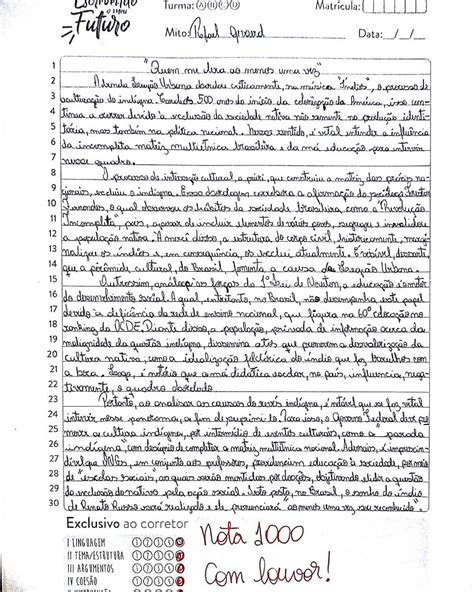 Escrevendo
o meu
Futuro
Turma: A B C D
Matrícula:
Mito: Rafael Girard
Data: _/_/_
1 "Quem me dera ao menos uma vez"
2 A banda Legião Urbana narrou criticamente, na música "Índios", o processo de
3 aculturação do indígena. Tendo 500 anos do início da colonização da América, isso con-
4 tinua a ocorrer devido à exclusão da sociedade nativa não somente na produção identi-
5 tária, mas também na política nacional. Nesse sentido, é vital entender a influência
6 da incompleta matriz multiétnica brasileira e da má educação para intervir
7 nesse quadro.
8 O processo de interação cultural, a priori, que construiu a matriz das práxis na-
9 cionais, excluiu o indígena. Essa abordagem corrobora a afirmação do sociólogo Florestan
10 Fernandes, o qual descreveu os hábitos da sociedade brasileira como a "Revolução
11 Incompleta", pois, apesar de incluir elementos de vários povos, segrega e invisibiliza
12 a população nativa. A mercê disso, a estrutura do corpo civil, historicamente, margi-
13 nalizou os índios e, em consequência, os exclui atualmente. É visível, dessarte,
14 que a pirâmide cultural, do Brasil, fomenta a causa da Legião Urbana.
15 Outrossim, análoga às forças da 1ª Lei de Newton, a educação é motor
16 do desenvolvimento social. A qual, entretanto, no Brasil, não desempenha este papel
17 devido à deficiência da rede de ensino nacional, que figura na 60ª colocação no
18 ranking da OCDE. Diante disso, a população, privada de informação acerca da
19 malignidade da questão indígena, dissemina atos que promovem a desvalorização da
20 cultura nativa, como a idealização folclórica do índio que faz barulhos com
21 a boca. Logo, é notório que a má didática escolar, no país, influencia, nega-
22 tivamente, o quadro abordado.
23 Portanto, ao analisar as causas do revés indígena, é notável que se faz vital
24 intervir nesse panorama, a fim de suprimi-lo. Para isso, o Governo Federal deve pro-
25 mover a cultura indígena, por intermédio de eventos culturais, como a "parada
26 indígena", com desígnio de completar a matriz multiétnica nacional. Ademais, é imprescin-
27 dível que ONGs, em conjunto aos professores, providenciem educação à sociedade, por meio
28 de "escolas sociais, as quais serão mantidas por doações, objetivando elidir a questão
29 da exclusão do nativo pela ação social. Isto posto, no Brasil, o sonho do índio
30 de Renato Russo será realizado e ele pronunciará ao menos uma vez, seu reconhecido".
Exclusivo ao corretor
I LINGUAGEM
II TEMA/ESTRUTURA
III ARGUMENTOS
IV COESÃO
Nota 1000
Com louvor!